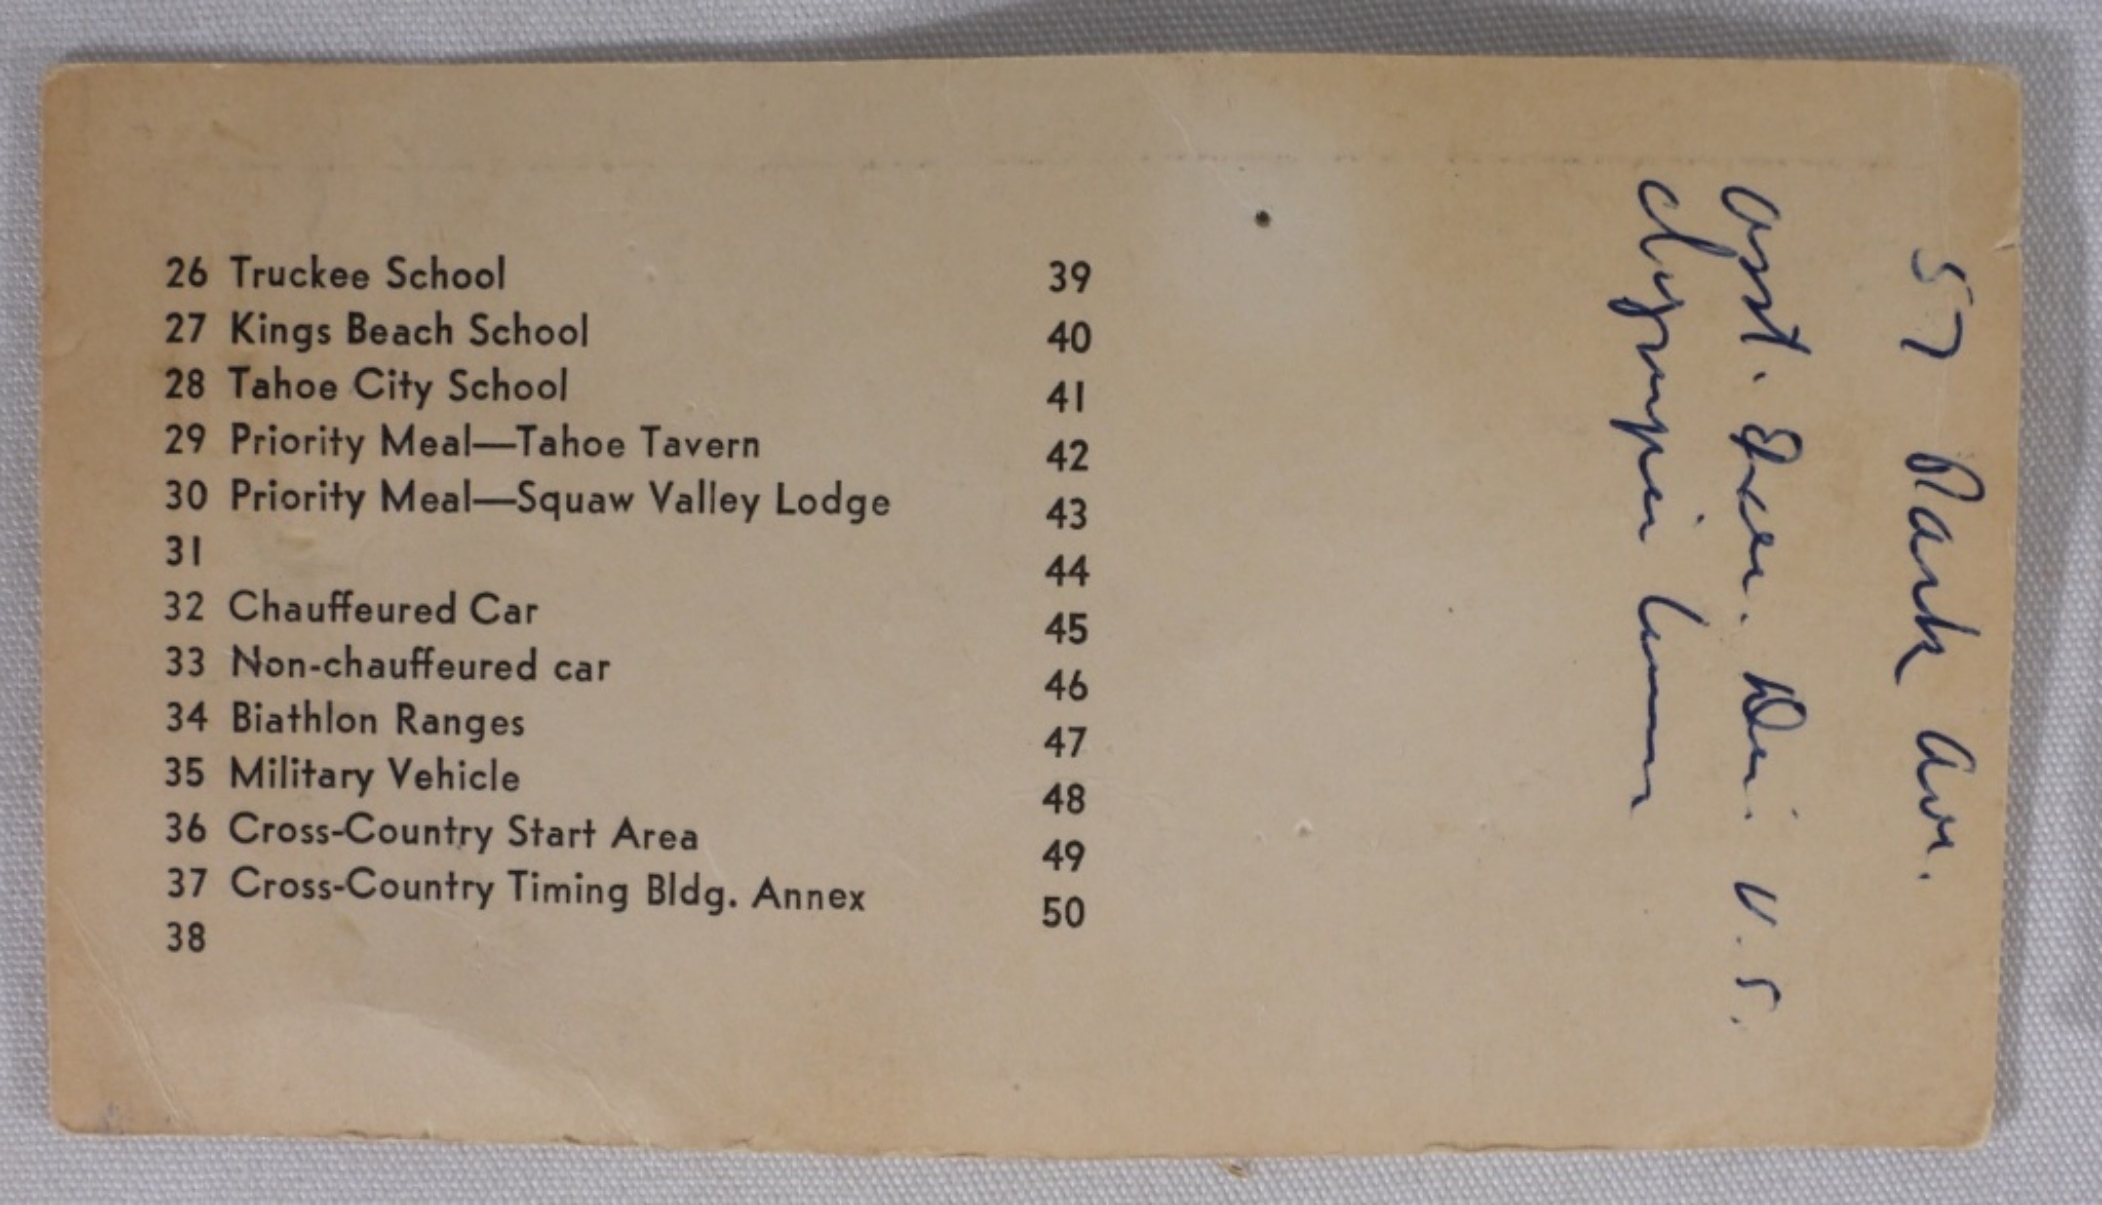 26 Truckee School
27 Kings Beach School
28 Tahoe City School
29 Priority Meal—Tahoe Tavern
30 Priority Meal—Squaw Valley Lodge
31
32 Chauffeured Car
33 Non-chauffeured car
34 Biathlon Ranges
35 Military Vehicle
36 Cross-Country Start Area
37 Cross-Country Timing Bldg. Annex
38
39
40
41
42
43
44
45
46
47
48
49
50
57 Park Ave.
Asst. Exec. Dir. U.S.
Olympic